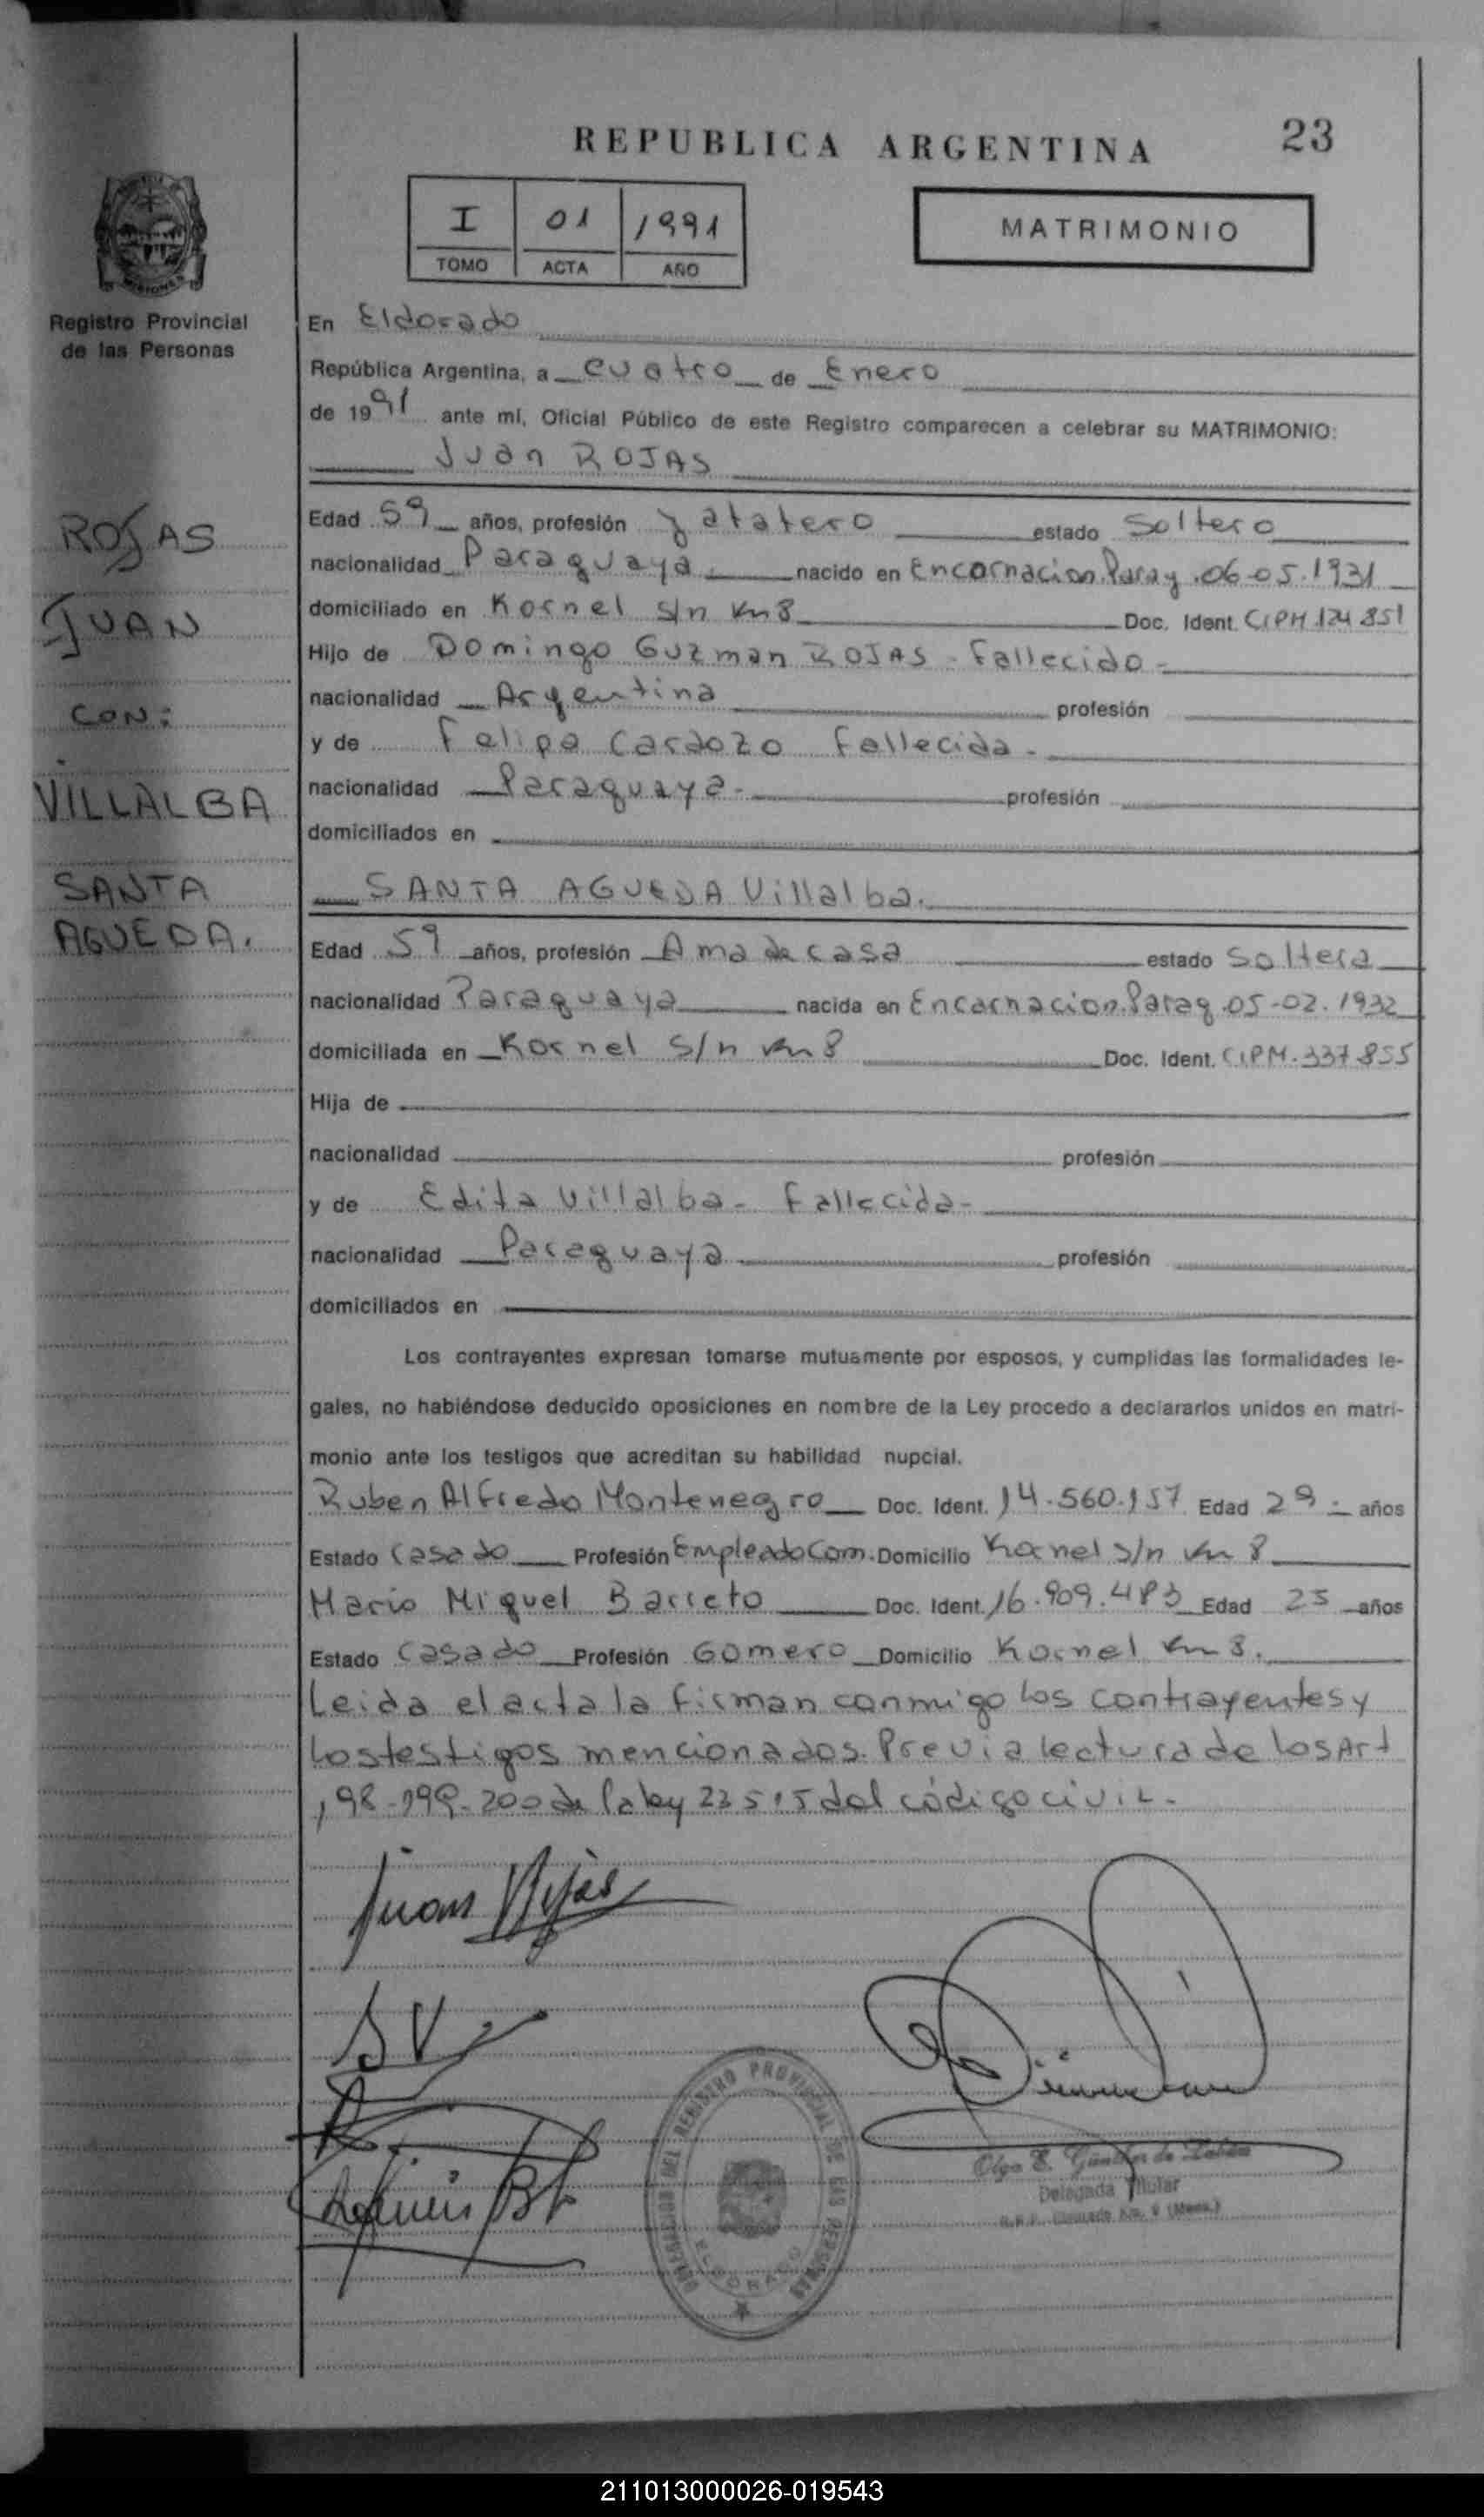 REPUBLICA ARGENTINA
23
I 01 1991
TOMO ACTA AÑO
MATRIMONIO
MISIONES
Registro Provincial
de las Personas
En Eldorado
República Argentina, a cuatro de Enero
de 1991 ante mí, Oficial Público de este Registro comparecen a celebrar su MATRIMONIO:
Juan ROJAS
ROJAS
JUAN
CON:
VILLALBA
SANTA
AGUEDA.
Edad 59 años, profesión estado Soltero
nacionalidad Paraguaya nacido en Encarnacion.Paray.06-05.1931
domiciliado en Kornel s/n Km8 Doc. Ident. CIPM.124851
Hijo de Domingo Guzman ROJAS - Fallecido-
nacionalidad Argentina profesión
y de Felipa Cardozo Fallecida-
nacionalidad Paraguaya- profesión
domiciliados en
SANTA AGUEDA Villalba.
Edad 59 años, profesión Ama de casa estado Soltera
nacionalidad Paraguaya nacida en Encarnacion.Parag.05-02.1932
domiciliada en Kornel S/n Km8 Doc. Ident. CIPM.337855
Hija de
nacionalidad profesión
y de Edita Villalba- Fallecida-
nacionalidad Paraguaya profesión
domiciliados en
Los contrayentes expresan tomarse mutuamente por esposos, y cumplidas las formalidades le-
gales, no habiéndose deducido oposiciones en nombre de la Ley procedo a declararlos unidos en matri-
monio ante los testigos que acreditan su habilidad nupcial.
Ruben Alfredo Montenegro Doc. Ident. 14.560.157 Edad 29 - años
Estado Casado Profesión Empleado Com. Domicilio Kornel s/n Km 8
Mario Miguel Barreto Doc. Ident. 16.909.483 Edad 25 años
Estado Casado Profesión Gomero Domicilio Kornel Km 8.
Leida el acta la firman conmigo los contrayentes y
los testigos mencionados. Previa lectura de los Art
198-199-200 de la ley 23515 del código civil-
Juan Rojas
SV
DELEGACION DEL REGISTRO PROVINCIAL DE LAS PERSONAS
ELDORADO
Olga E. Günther de
Delegada Titular
211013000026-019543